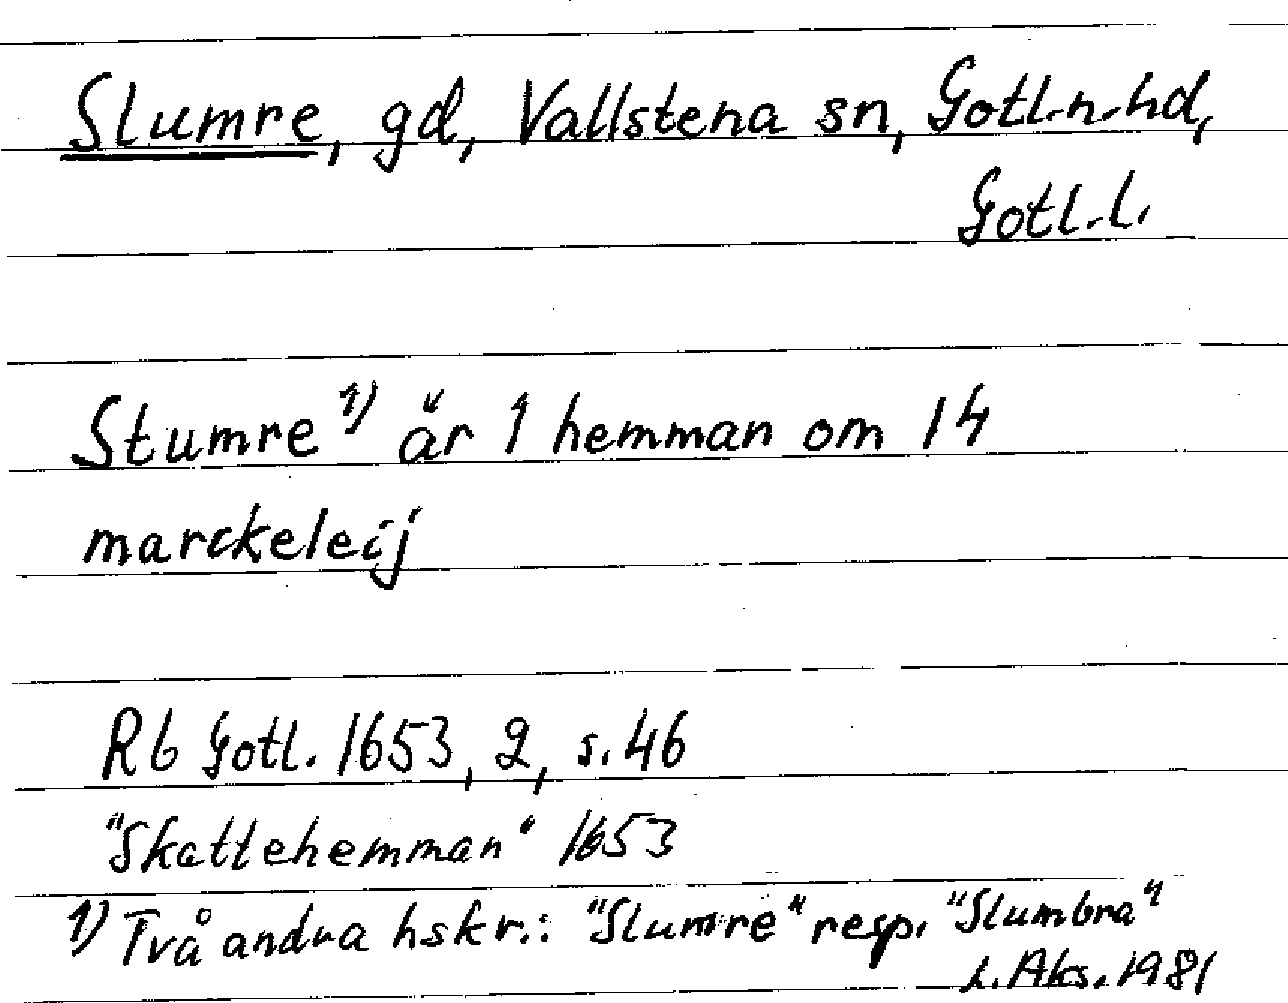 Slumre, gd, Vallstena sn, Gotl.n.hd,
Gotl.l.
Stumre 1) är 1 hemman om 14
marckeleij
Rb Gotl. 1653, 2, s. 46
"Skattehemman" 1653
1) Två andra hskr.: "Slumre" resp. "Slumbra"
Aks. 1981